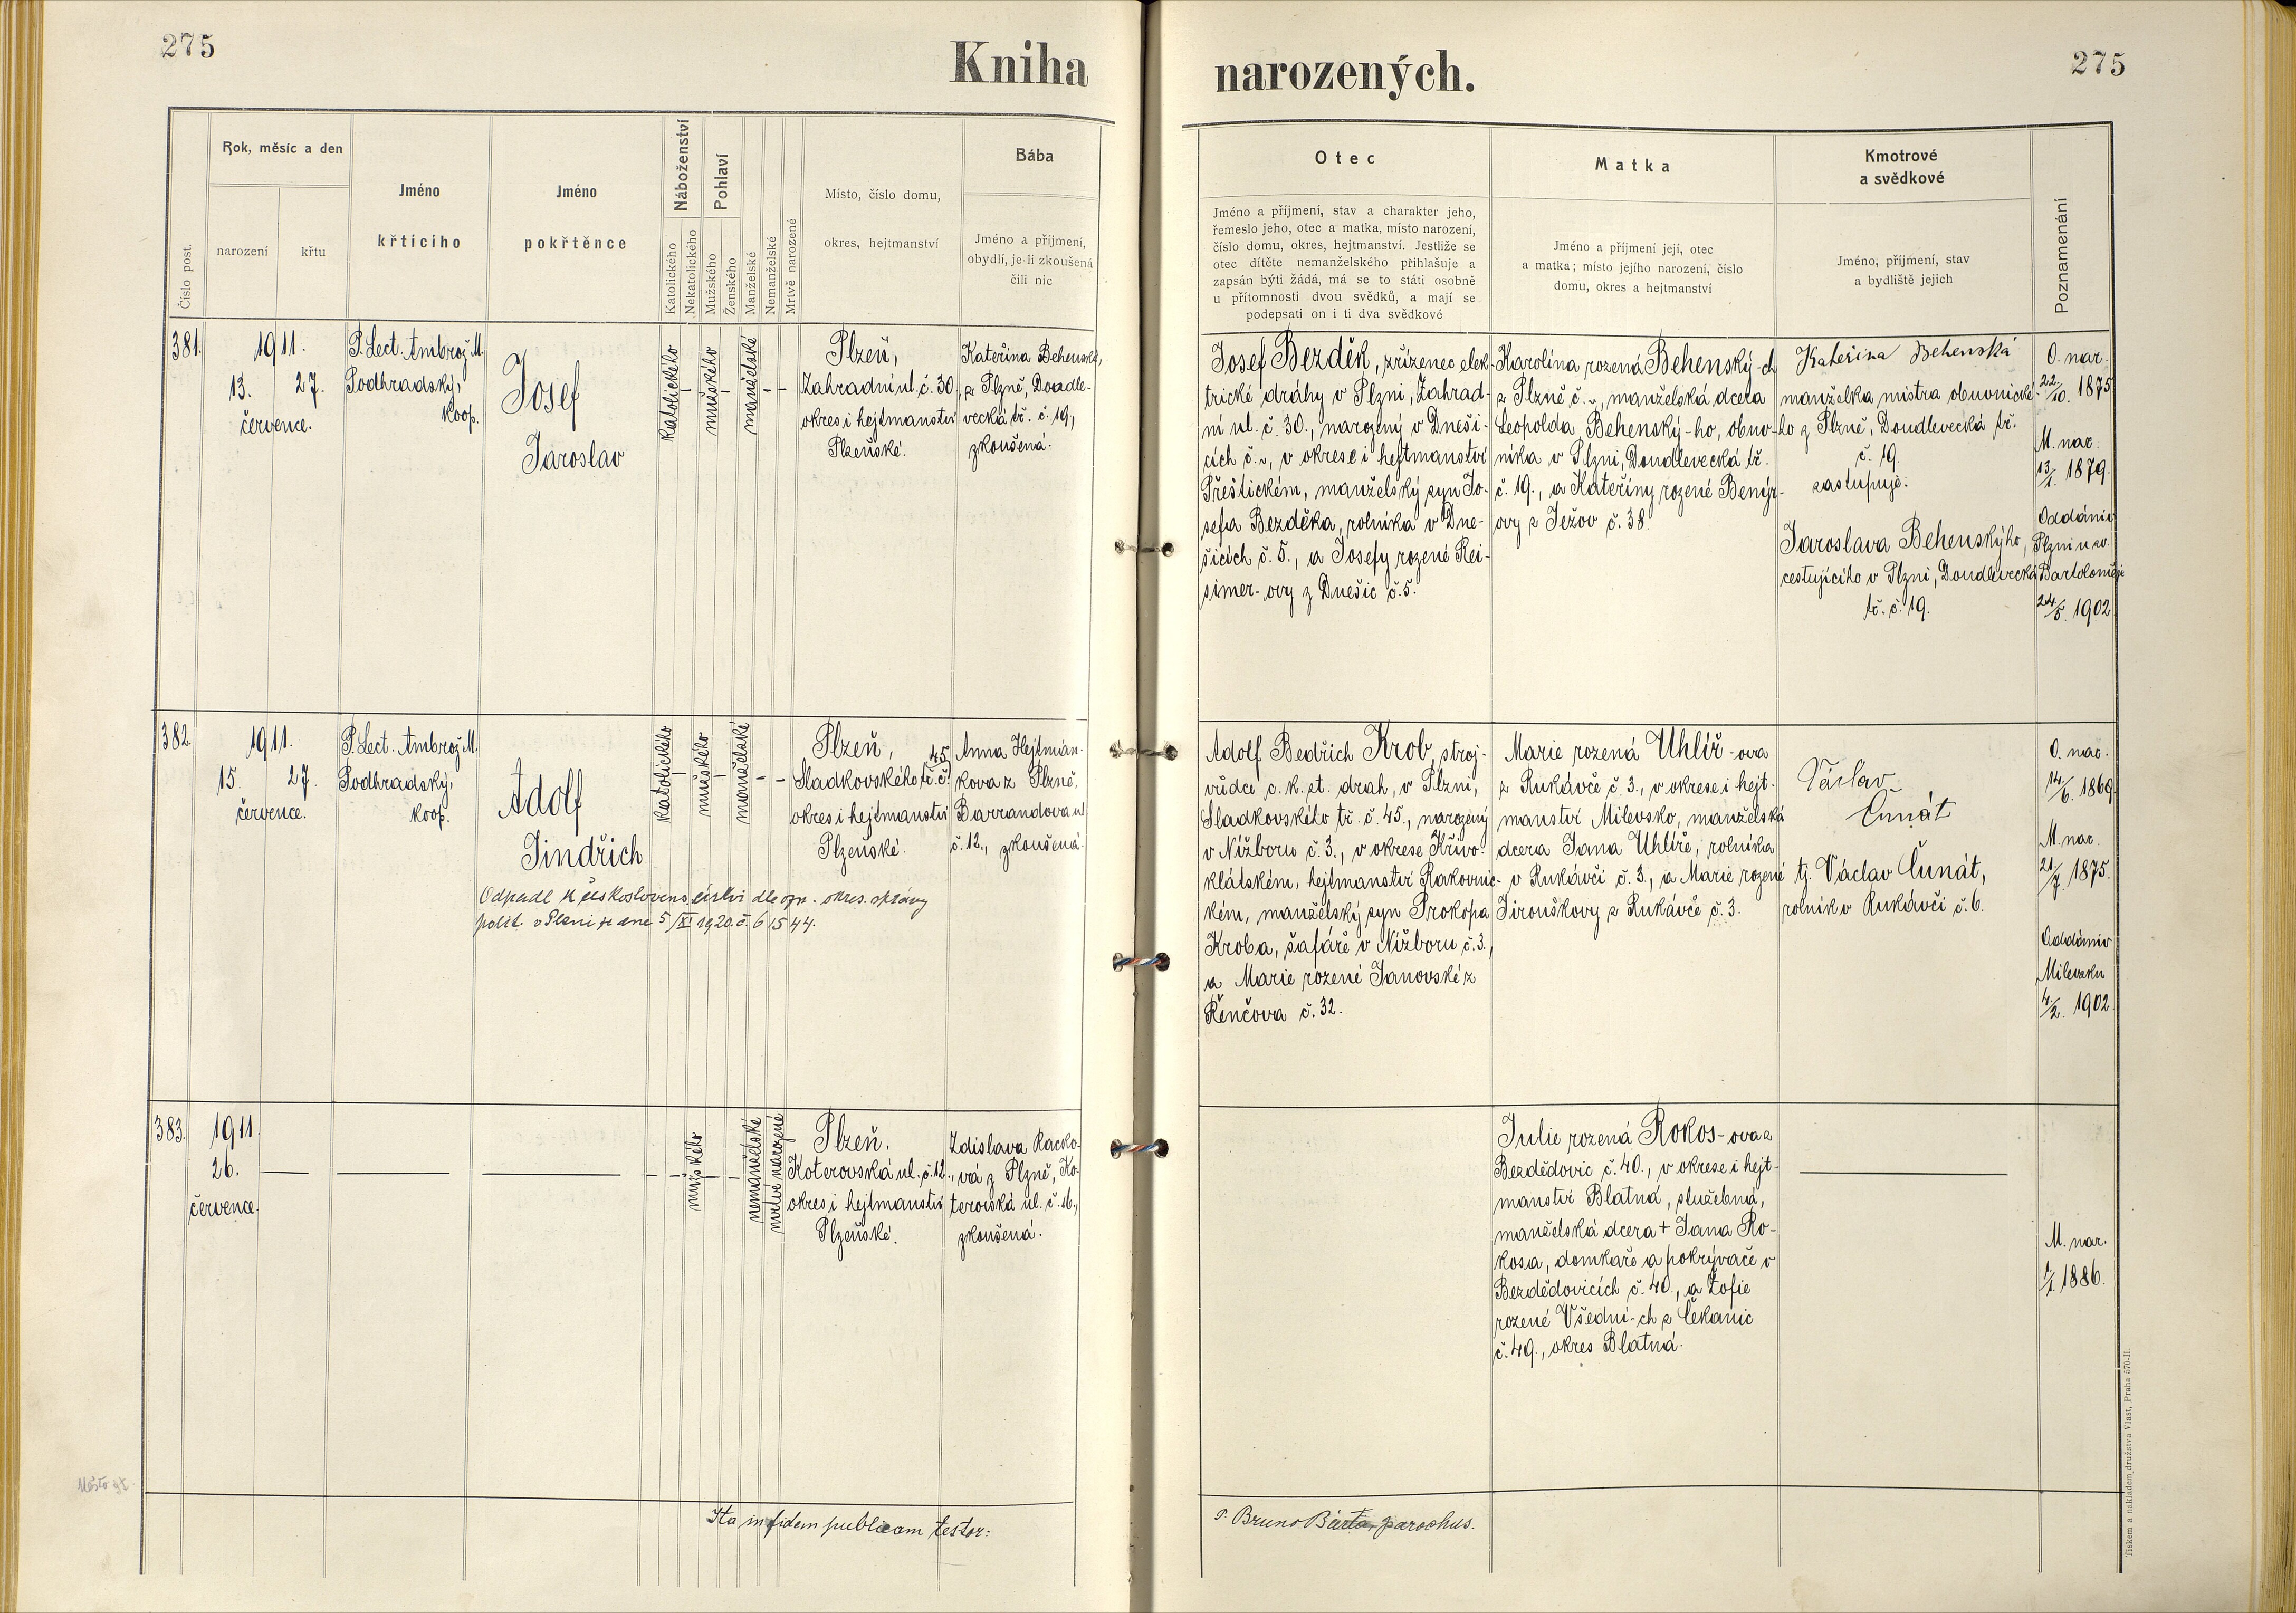 275
Kniha
narozených.
275
Číslo post.
Rok, měsíc a den
narození
křtu
Jméno
křticího
Jméno
pokřtěnce
Náboženství
Katolického
Nekatolického
Pohlaví
Mužského
Ženského
Manželské
Nemanželské
Mrtvě narozené
Místo, číslo domu,
okres, hejtmanství
Bába
Jméno a příjmení,
obydlí, je-li zkoušená
čili nic
Otec
Jméno a příjmení, stav a charakter jeho,
řemeslo jeho, otec a matka, místo narození,
číslo domu, okres, hejtmanství. Jestliže se
otec dítěte nemanželského přihlašuje a
zapsán býti žádá, má se to státi osobně
u přítomnosti dvou svědků, a mají se
podepsati on i ti dva svědkové
Matka
Jméno a příjmení její, otec
a matka; místo jejího narození, číslo
domu, okres a hejtmanství
Kmotrové
a svědkové
Jméno, příjmení, stav
a bydliště jejich
Poznamenání
381.
1911.
13. 27.
července.
P. Lect. Ambrož M.
Podhradský,
koop.
Josef
Jaroslav
katolického
mužského
manželské
Plzeň,
Zahradní ul. č. 30,
okres i hejtmanství
Plzeňské.
Kateřina Behenská,
z Plzně, Doudle-
vecká tř. č. 19,
zkoušená.
Josef Bezděk, zřízenec elek-
trické dráhy v Plzni, Zahrad-
ní ul. č. 30., narozený v Dneši-
cích č. ~, v okrese i hejtmanství
Přeštickém, manželský syn Jo-
sefa Bezděka, rolníka v Dne-
šicích č. 5., a Josefy rozené Rei-
simer-ovy z Dnešic č. 5.
Karolína rozená Behenský-ch
z Plzně č. ~, manželská dcera
Leopolda Behenský-ho, obuv-
níka v Plzni, Doudlevecká tř.
č. 19., a Kateřiny rozené Benýr-
ovy z Ježov č. 38.
Kateřina Behenská
manželka mistra obuvnické-
ho z Plzně, Doudlevecká tř.
č. 19.
zastupuje:
Jaroslava Behenskýho,
cestujícího v Plzni, Doudlevecká
tř. č. 19.
O. nar.
22/10. 1875
M. nar.
13/1. 1879.
Oddáni v
Plzni u sv.
Bartoloměje
24/5. 1902
382.
1911.
15. 27.
července.
P. Lect. Ambrož M.
Podhradský,
koop.
Adolf
Jindřich
Odpadl k českoslovens. církvi dle ozn. okres. správy
polit. v Plzni ze dne 5/XI 1920. č. 61544.
katolického
mužského
manželské
Plzeň,
45
Sladkovského tř. č.
okres i hejtmanství
Plzeňské.
Anna Hejtmán-
kova z Plzně,
Barrandova ul.
č. 12., zkoušená.
Adolf Bedřich Krob, stroj-
vůdce c. k. st. drah, v Plzni,
Sladkovského tř. č. 45., narozený
v Nižboru č. 3., v okrese Křivo-
klátském, hejtmanství Rakovnic-
kém, manželský syn Prokopa
Kroba, šafáře v Nižboru č. 3.,
a Marie rozené Janovské z
Řenčova č. 32.
Marie rozená Uhlíř-ova
z Rukávče č. 3., v okrese i hejt-
manství Milevsko, manželská
dcera Jana Uhlíře, rolníka
v Rukávči č. 3., a Marie rozené
Jirouškovy z Rukávče č. 3.
Václav
Čunát
tj. Václav Čunát,
rolník v Rukávči č. 6.
O. nar.
14/6. 1869
M. nar.
21/7. 1875.
Oddáni v
Milevsku
4/2. 1902.
383.
1911.
26.
července.
mužského
nemanželské
mrtvě narozené
Plzeň.
Koterovská ul. č. 12.,
okres i hejtmanství
Plzeňské.
Zdislava Racko-
vá z Plzně, Ko-
terovská ul. č. 16.,
zkoušená.
Julie rozená Rokos-ova z
Bezdědovic č. 40., v okrese i hejt-
manství Blatná, služebná,
manželská dcera + Jana Ro-
kosa, domkaře a pokrývače v
Bezdědovicích č. 40., a Žofie
rozené Všední-ch z Čekanic
č. 49., okres Blatná.
M. nar.
1/1. 1886.
Ita in fidem publicam testor:
P. Bruno Bárta, parochus.
Tiskem a nakladem družstva Vlast, Praha 570-II.